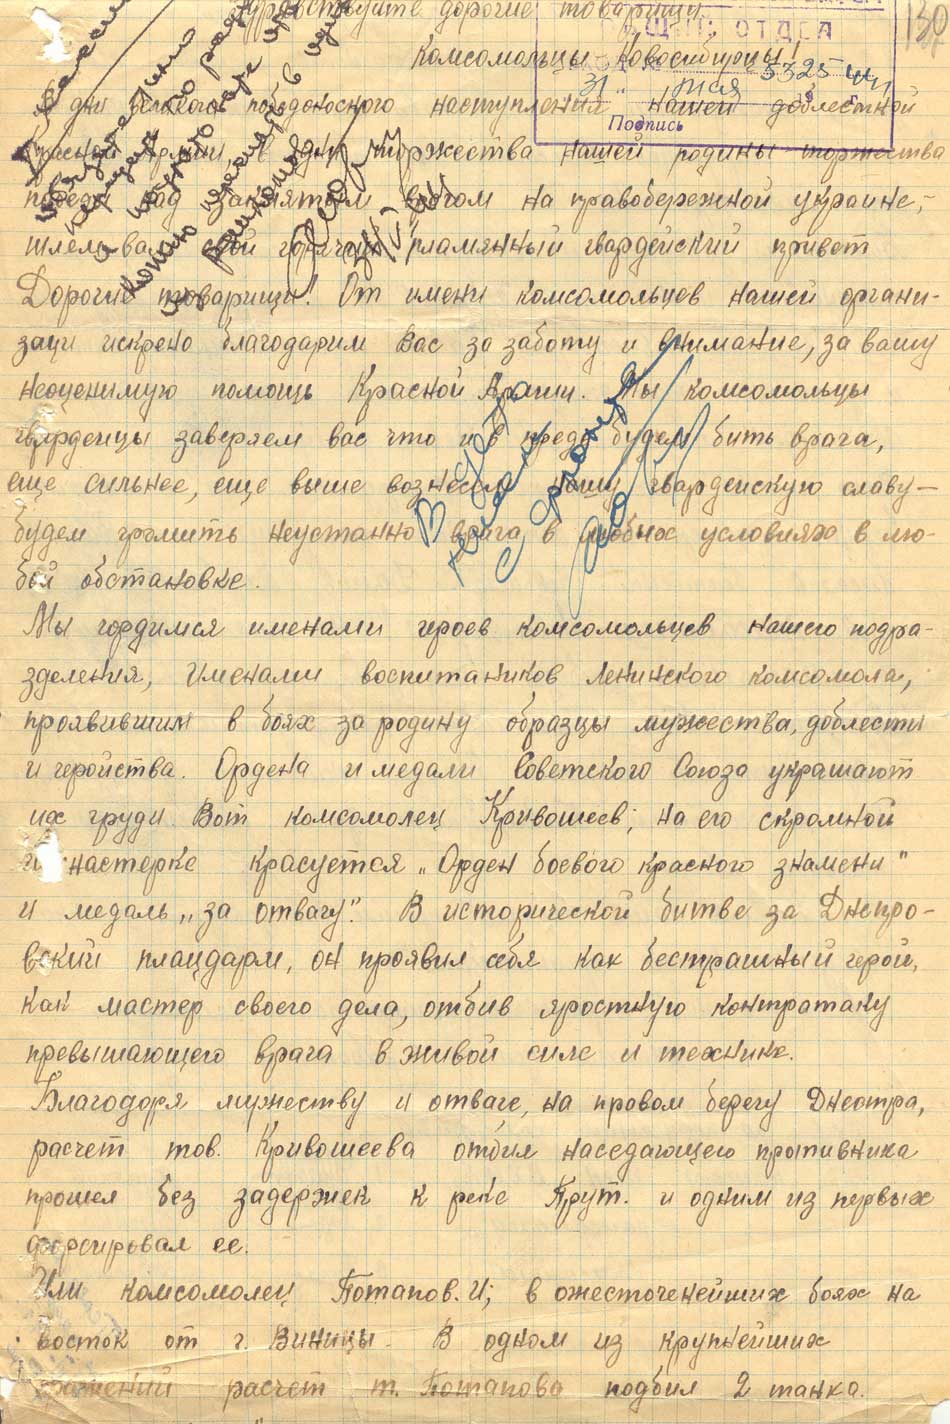 Здравствуйте дорогие товарищи
комсомольцы Новосибирцы!
130
ОБЩИЙ ОТДЕЛ
31 " мая 5325
Подпись
В дни великого победоносного наступления нашей доблестной
красной армии в дни торжества нашей родины торжества
победы над заклятым врагом на правобережной украине,-
шлем вам свой горячий пламянный гвардейский привет
Дорогие товарищи! От имени комсомольцев нашей органи-
заци искрено благодарим Вас за заботу и внимание, за вашу
неоценимую помощь Красной Армии. Мы комсомольцы
гвардейцы заверяем вас что и в предь будем бить врага,
еще сильнее, еще выше вознесем нашу гвардейскую славу—
будем громить неустанно врага в любых условиях в лю-
бой обстановке.
Мы гордимся именами героев комсомольцев нашего подра-
зделения, именами воспитаников Ленинского комсомола,
проявившим в боях за родину образцы мужества, доблести
и геройства. Ордена и медали Советского Союза украшают
их груди. Вот комсомолец Кривошеев; на его скромной
гимнастерке красуется „Орден боевого красного знамени"
и медаль „за отвагу". В исторической битве за Днепро-
вский плацдарм, он проявил себя как бестрашный герой,
как мастер своего дела, отбив яростную контратаку
превышающего врага в живой силе и технике.
Благодоря мужеству и отваге, на провом берегу Днестра,
расчет тов. Кривошеева отбил наседающего противника
прошел без задержек к реке Прут. и одним из первых
форсировал ее.
Или комсомолец Потапов. И; в ожесточенейших боях на
восток от г. Виницы. В одном из крупнейших
сражений расчет т. Потапова подбил 2 танка.